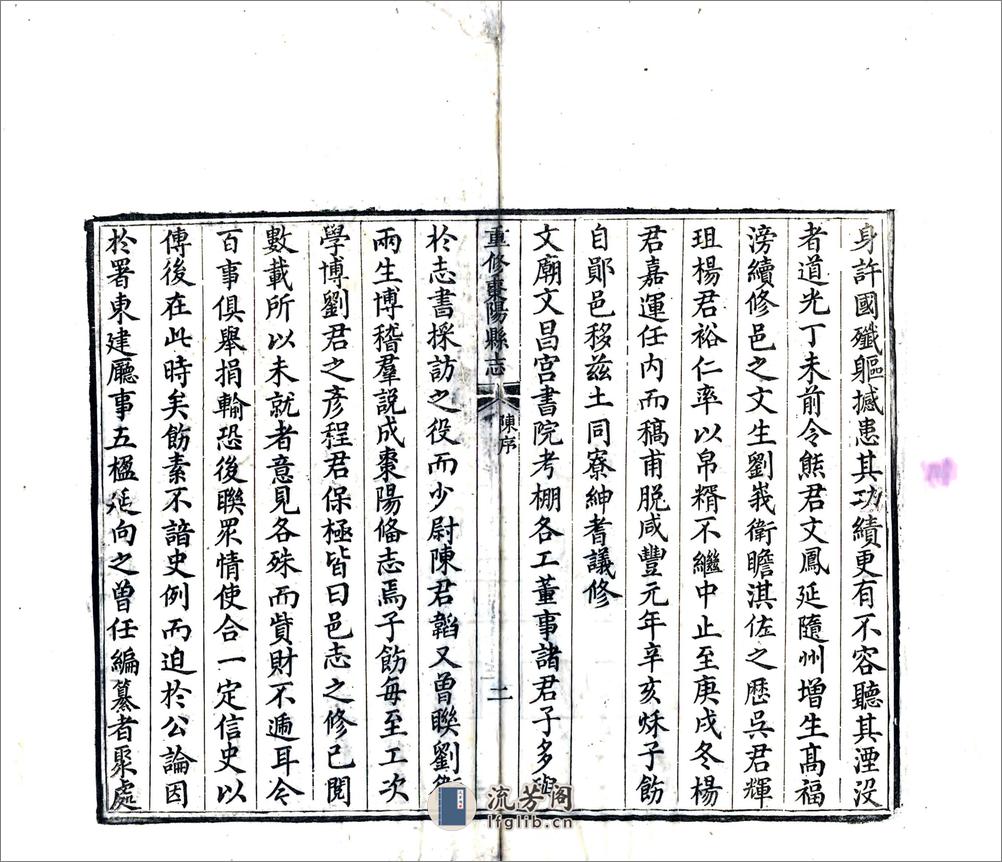 身許國殲軀撼患其功績更有不容聽其湮沒
者道光丁未前令熊君文鳳延隨州增生高福
滂續修邑之文生劉峩衛瞻淇佐之歷吳君輝
珇楊君裕仁率以帛糈不繼中止至庚戌冬楊
君嘉運任内而稿甫脫咸豐元年辛亥秌子飭
自鄖邑移兹土同寮紳耆議修
文廟文昌宮書院考棚各工董事諸君子多
重修棗陽縣志
陳序
二
於志書採訪之役而少尉陳君韜又曾聯劉衛
兩生博稽羣說成棗陽備志焉子飭每至工次
學博劉君之彥程君保極皆曰邑志之修已閱
數載所以未就者意見各殊而貲財不逓耳今
百事俱舉捐輸恐後聯眾情使合一定信史以
傳後在此時矣飭素不諳史例而迫於公論因
於署東建廳事五楹延向之曾任編纂者聚處
流芳阁
lfglib.cn